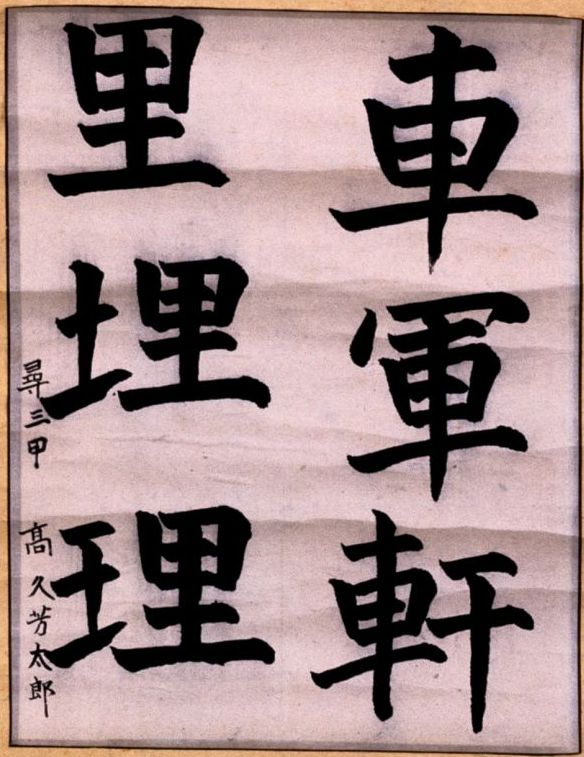 車軍軒
里埋理
尋三甲 髙久芳太郎